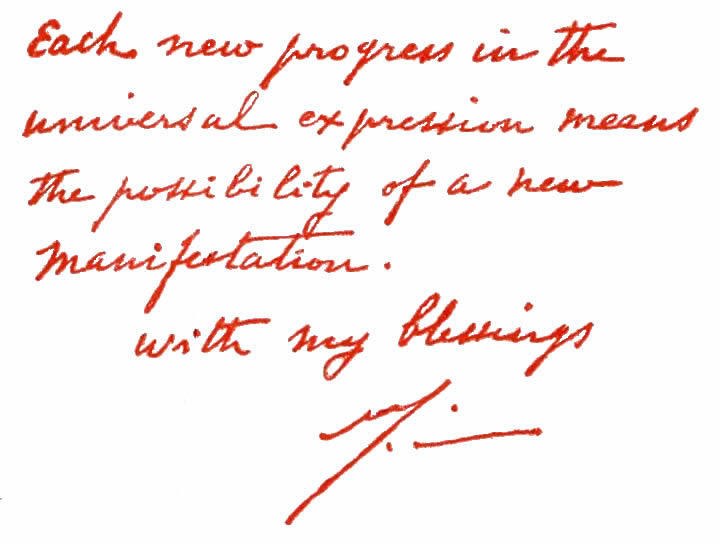 Each new progress in the
universal expression means
the possibility of a new
manifestation.
with my blessings